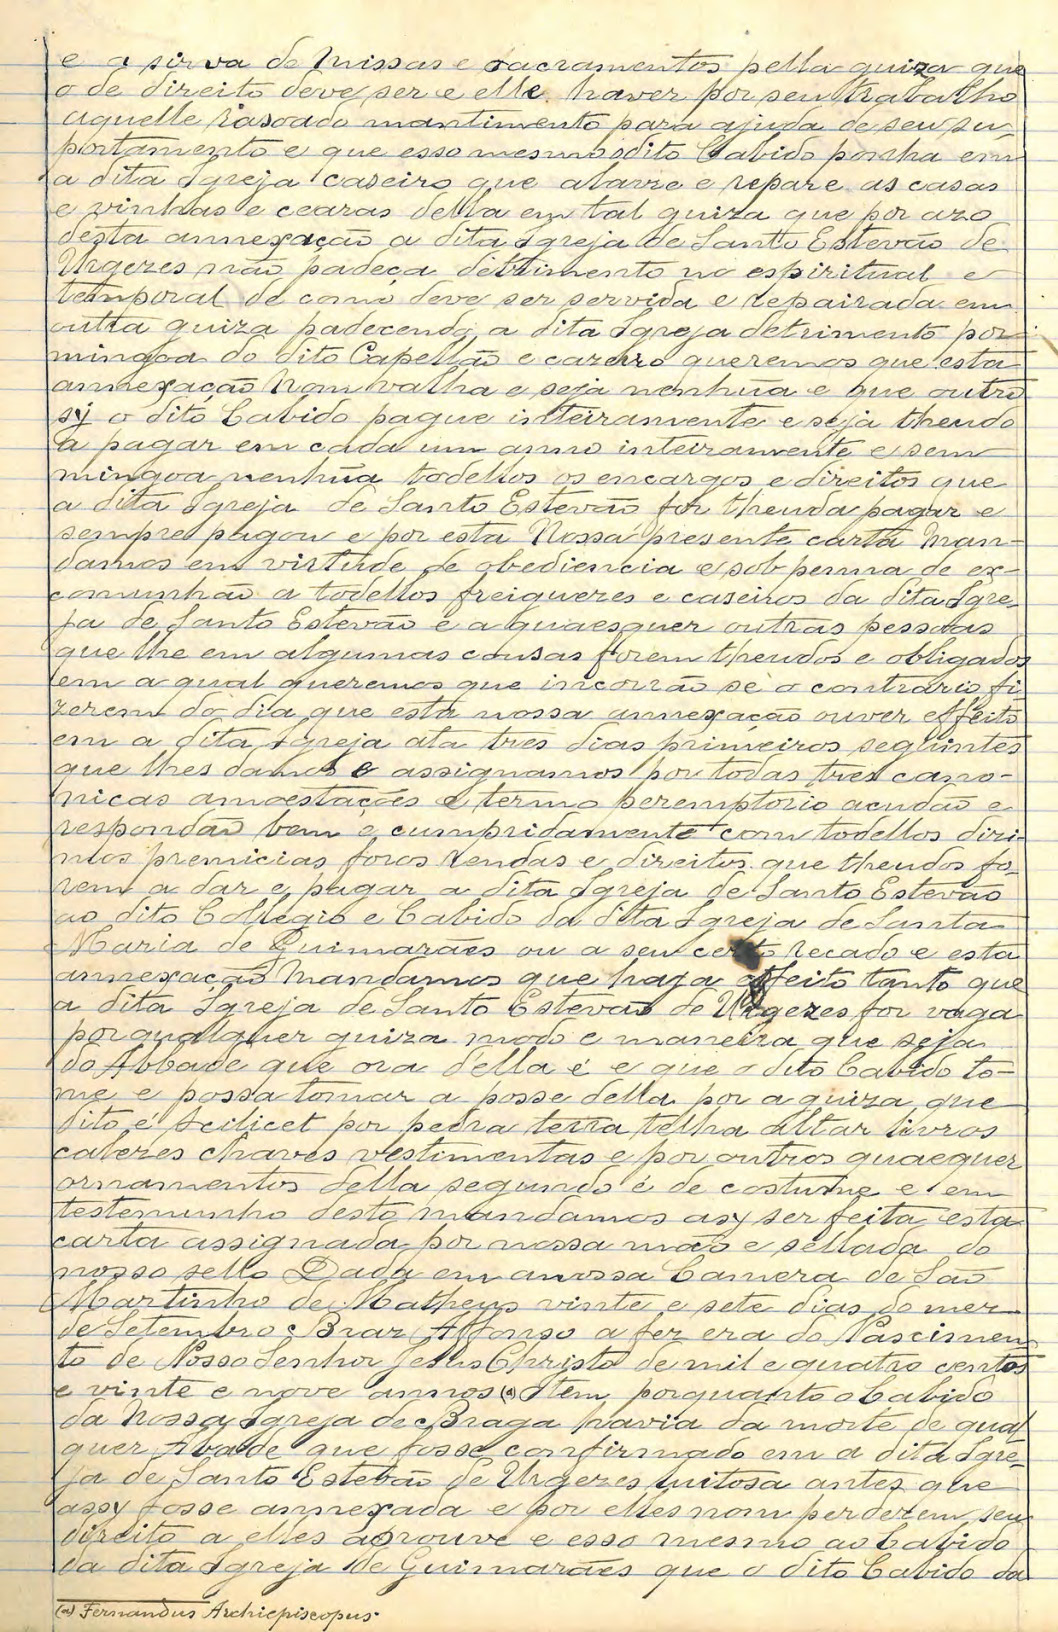 e a sirva de Missas e sacramentos pella guiza que
o de direito deve ser e elle haver por seu trabalho
aquelle rasoado mantimento para ajuda de seu su-
portamento e que esso mesmo o dito Cabido ponha em
a dita Igreja caseiro que alavre e repare as casas
e vinhas e cearas della em tal guiza que por azo
desta annexação a dita Igreja de Santo Estevão de
Urgezes não padeça detrimento no espiritual e
temporal de como deve ser servida e repairada em
outra guiza padecendo a dita Igreja detrimento por
mingoa do dito Capellão e cazeiro queremos que esta
annexação nom valha e seja nenhũa e que outro
sÿ o dito Cabido pague inteiramente e seja theudo
a pagar em cada um anno inteiramente e sem
mingoa nenhũa todellos os encargos e direitos que
a dita Igreja de Santo Estevão for theuda pagar e
sempre pagou e por esta Nossa presente carta Man-
damos em virtude de obediencia e sob penna de ex-
comunhão a todellos freiguezes e caseiros da dita Igre-
ja de Santo Estevão e a quaesquer outras pessoas
que lhe em algumas cousas forem theudos e obligados
em a qual queremos que incorrão se o contrario fi-
zerem do dia que esta nossa annexação ouver effeito
em a dita Igreja ata tres dias primeiros seguintes
que lhes damos e assignamos por todas tres cano-
nicas amoestações e termo peremptorio acudão e
respondão bem e cumpridamente com todellos dizi-
mos premicias foros rendas e direitos que theudos fo-
rem a dar e pagar a dita Igreja de Santo Estevão
ao dito Collegio e Cabido da dita Igreja de Santa
Maria de Guimarães ou a seu certo recado e esta
annexação Mandamos que haja effeito tanto que
a dita Igreja de Santo Estevão de Urgezes for vaga
por qualquer guiza modo e maneira que seja
do Abbade que ora d'ella é e que o dito Cabido to-
me e possa tomar a posse della por a guiza que
dito é scilicet por pedra terra telha altar livros
calezes chaves vestimentas e por outros quaequer
ornamentos della segundo é de costume e em
testemunho desto mandamos asy ser feita esta
carta assignada por nossa mão e sellada do
nosso sello Dada em a nossa Camera de São
Martinho de Matheus vinte e sete dias do mez
de Setembro Braz Affonso a fez era do Nascimen-
to de Nosso Senhor Jesus Christo de mil e quatro centos
e vinte e nove annos (a) Item porquanto o Cabido
da Nossa Igreja de Braga havia da morte de qual
quer Abade que fosse confirmado em a dita Igre-
ja de Santo Estevão de Urgezes luitosa antes que
assy fosse annexada e por elles nom perderem seu
direito a elles aprouve e esso mesmo ao Cabido
da dita Igreja de Guimarães que o dito Cabido da
(a) Fernandus Archiepiscopus.